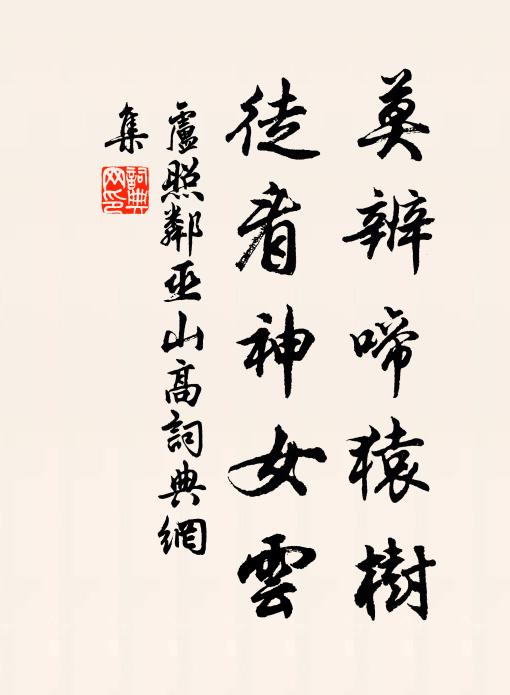 莫辨啼猿樹
徒看神女雲
盧照鄰巫山高詞典網
集
詞典網印